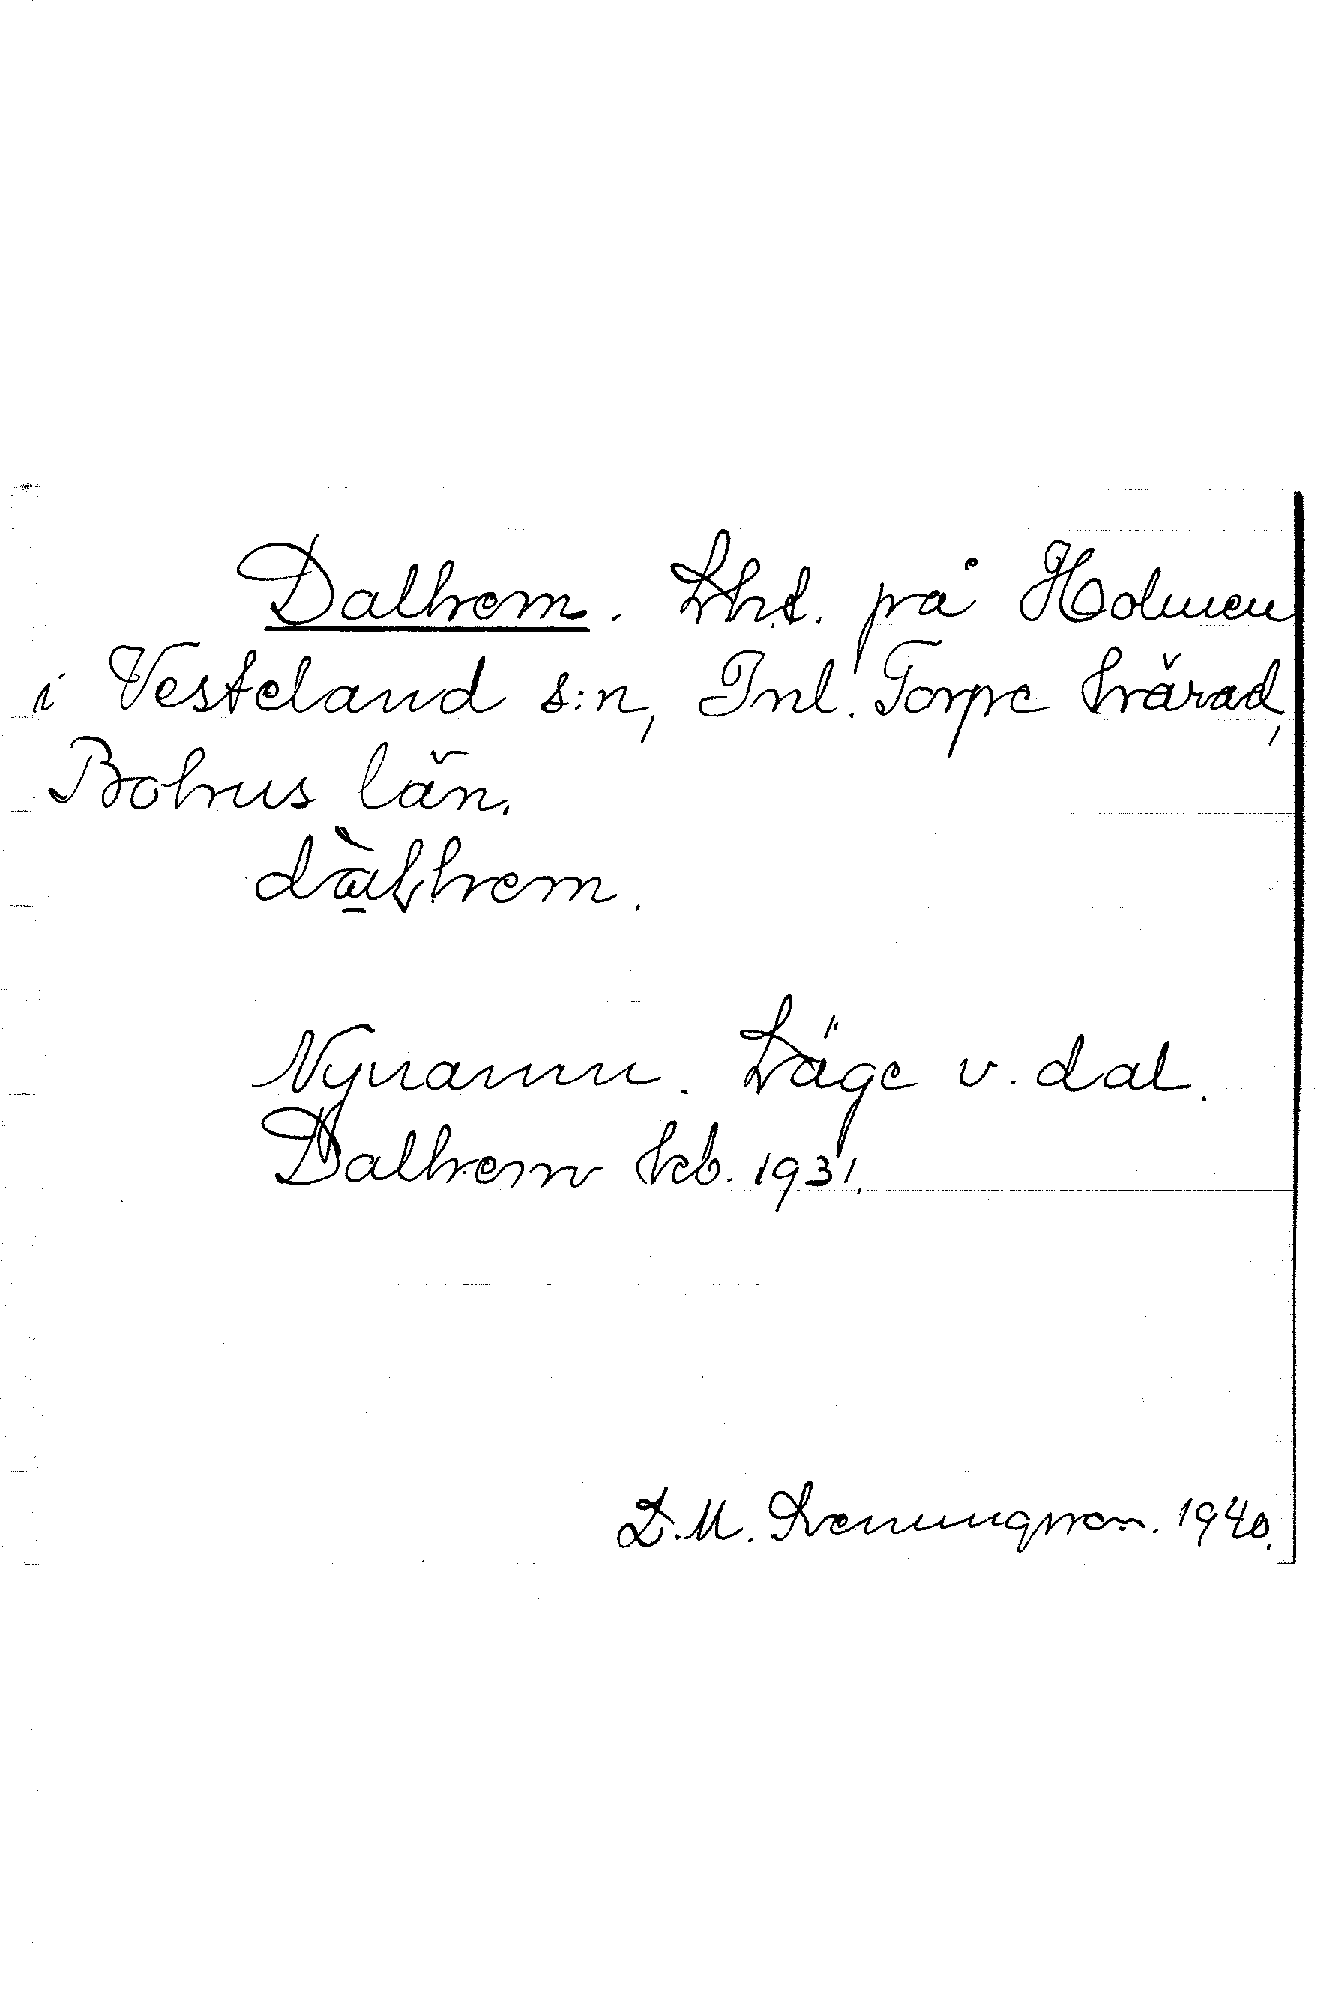 Dalhem. Lht. på Holmen
i Vesteland s:n, Inl. Torpe härad,
Bohus län.
dàlhem.
Nynamn. Läge v. dal.
Dalhem hcb. 1931.
D. M. 1940.